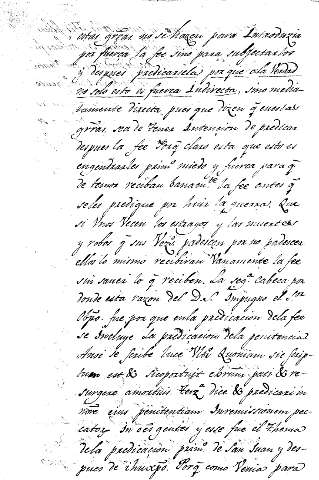 estas grras no se hazen para Introduzir
por fuerza la fee sino para subjectarlos
y despues predicarsela porque a la Verdad
no solo esto es fuerza Indirecta, sino media-
tamente directa pues que dizen q en estas
grras, sea de tener Intencion de predicar
despues la fee
Claro esta que esto es
engendrarles primo miedo y fuerza para q
de temor reciban la fee antes q
se les predique
guerras. Que
si Vnos Veen los estragos y las muertes
y robos q sus Vezs padescen por no padecer
ellos lo mismo recibiran Vanamente la fee
sin saver lo q reciben. La segda cabeça
donde esta razon del D.
Impugno el Sor
Obpo. fue por que en la predicacion de la fee
se Incluye la predicacion de la penitencia
Ansi lo scribe Luce Vlto Quoniam sic scrip-
tum est & sic oportuit christum pati & re-
surgere a mortuis
dia & predicari in
noie eius penitentiam In remissionem pec-
cator In oēs gentes y esse fue el Thema
de la predicacion primo de San Juan y des-
pues de
Porq como Venia para